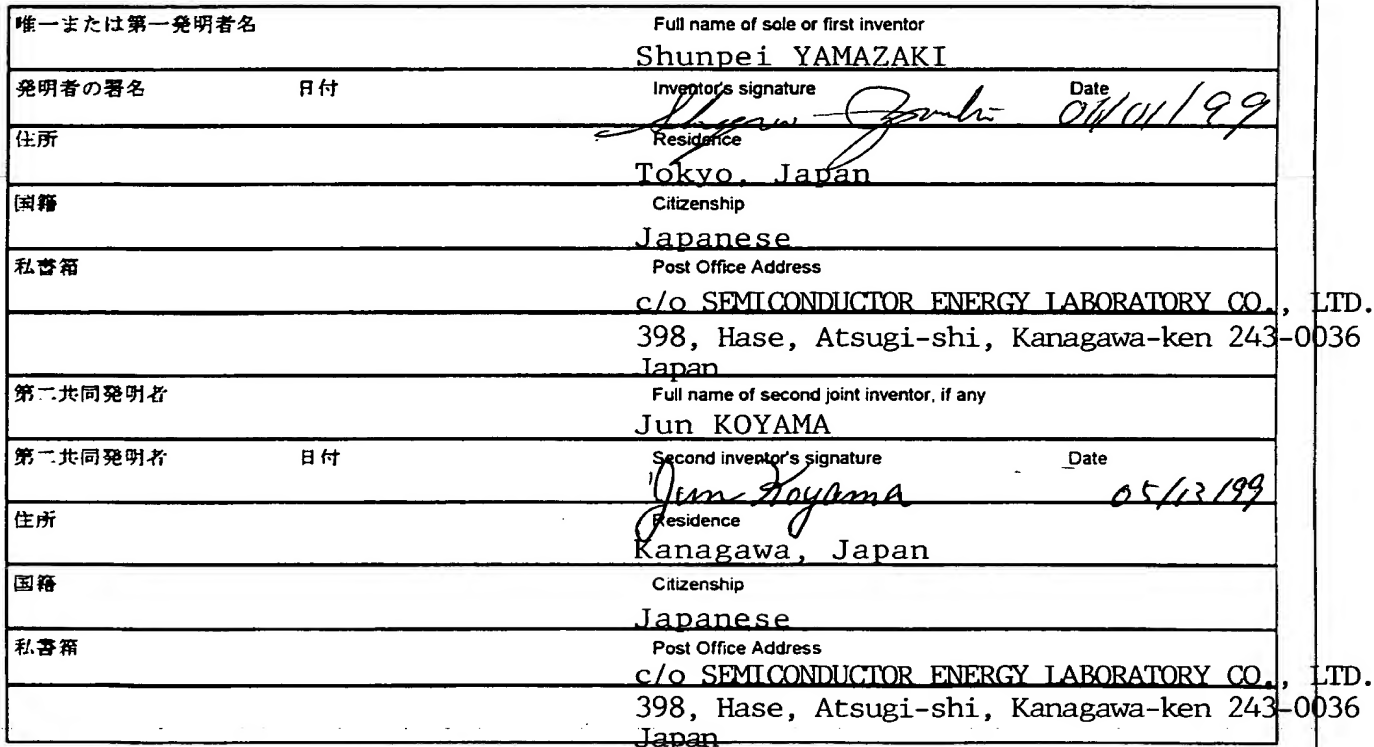 唯一または第一発明者名 Full name of sole or first inventor
Shunpei YAMAZAKI
発明者の署名 日付 Inventor's signature Date
/01/99
住所 Residence
Tokyo, Japan
国籍 Citizenship
Japanese
私書箱 Post Office Address
c/o SEMICONDUCTOR ENERGY LABORATORY CO., LTD.
398, Hase, Atsugi-shi, Kanagawa-ken 243-0036
Japan
第二共同発明者 Full name of second joint inventor, if any
Jun KOYAMA
第二共同発明者 日付 Second inventor's signature Date
Jun Koyama 05/13/99
住所 Residence
Kanagawa, Japan
国籍 Citizenship
Japanese
私書箱 Post Office Address
c/o SEMICONDUCTOR ENERGY LABORATORY CO., LTD.
398, Hase, Atsugi-shi, Kanagawa-ken 243-0036
Japan